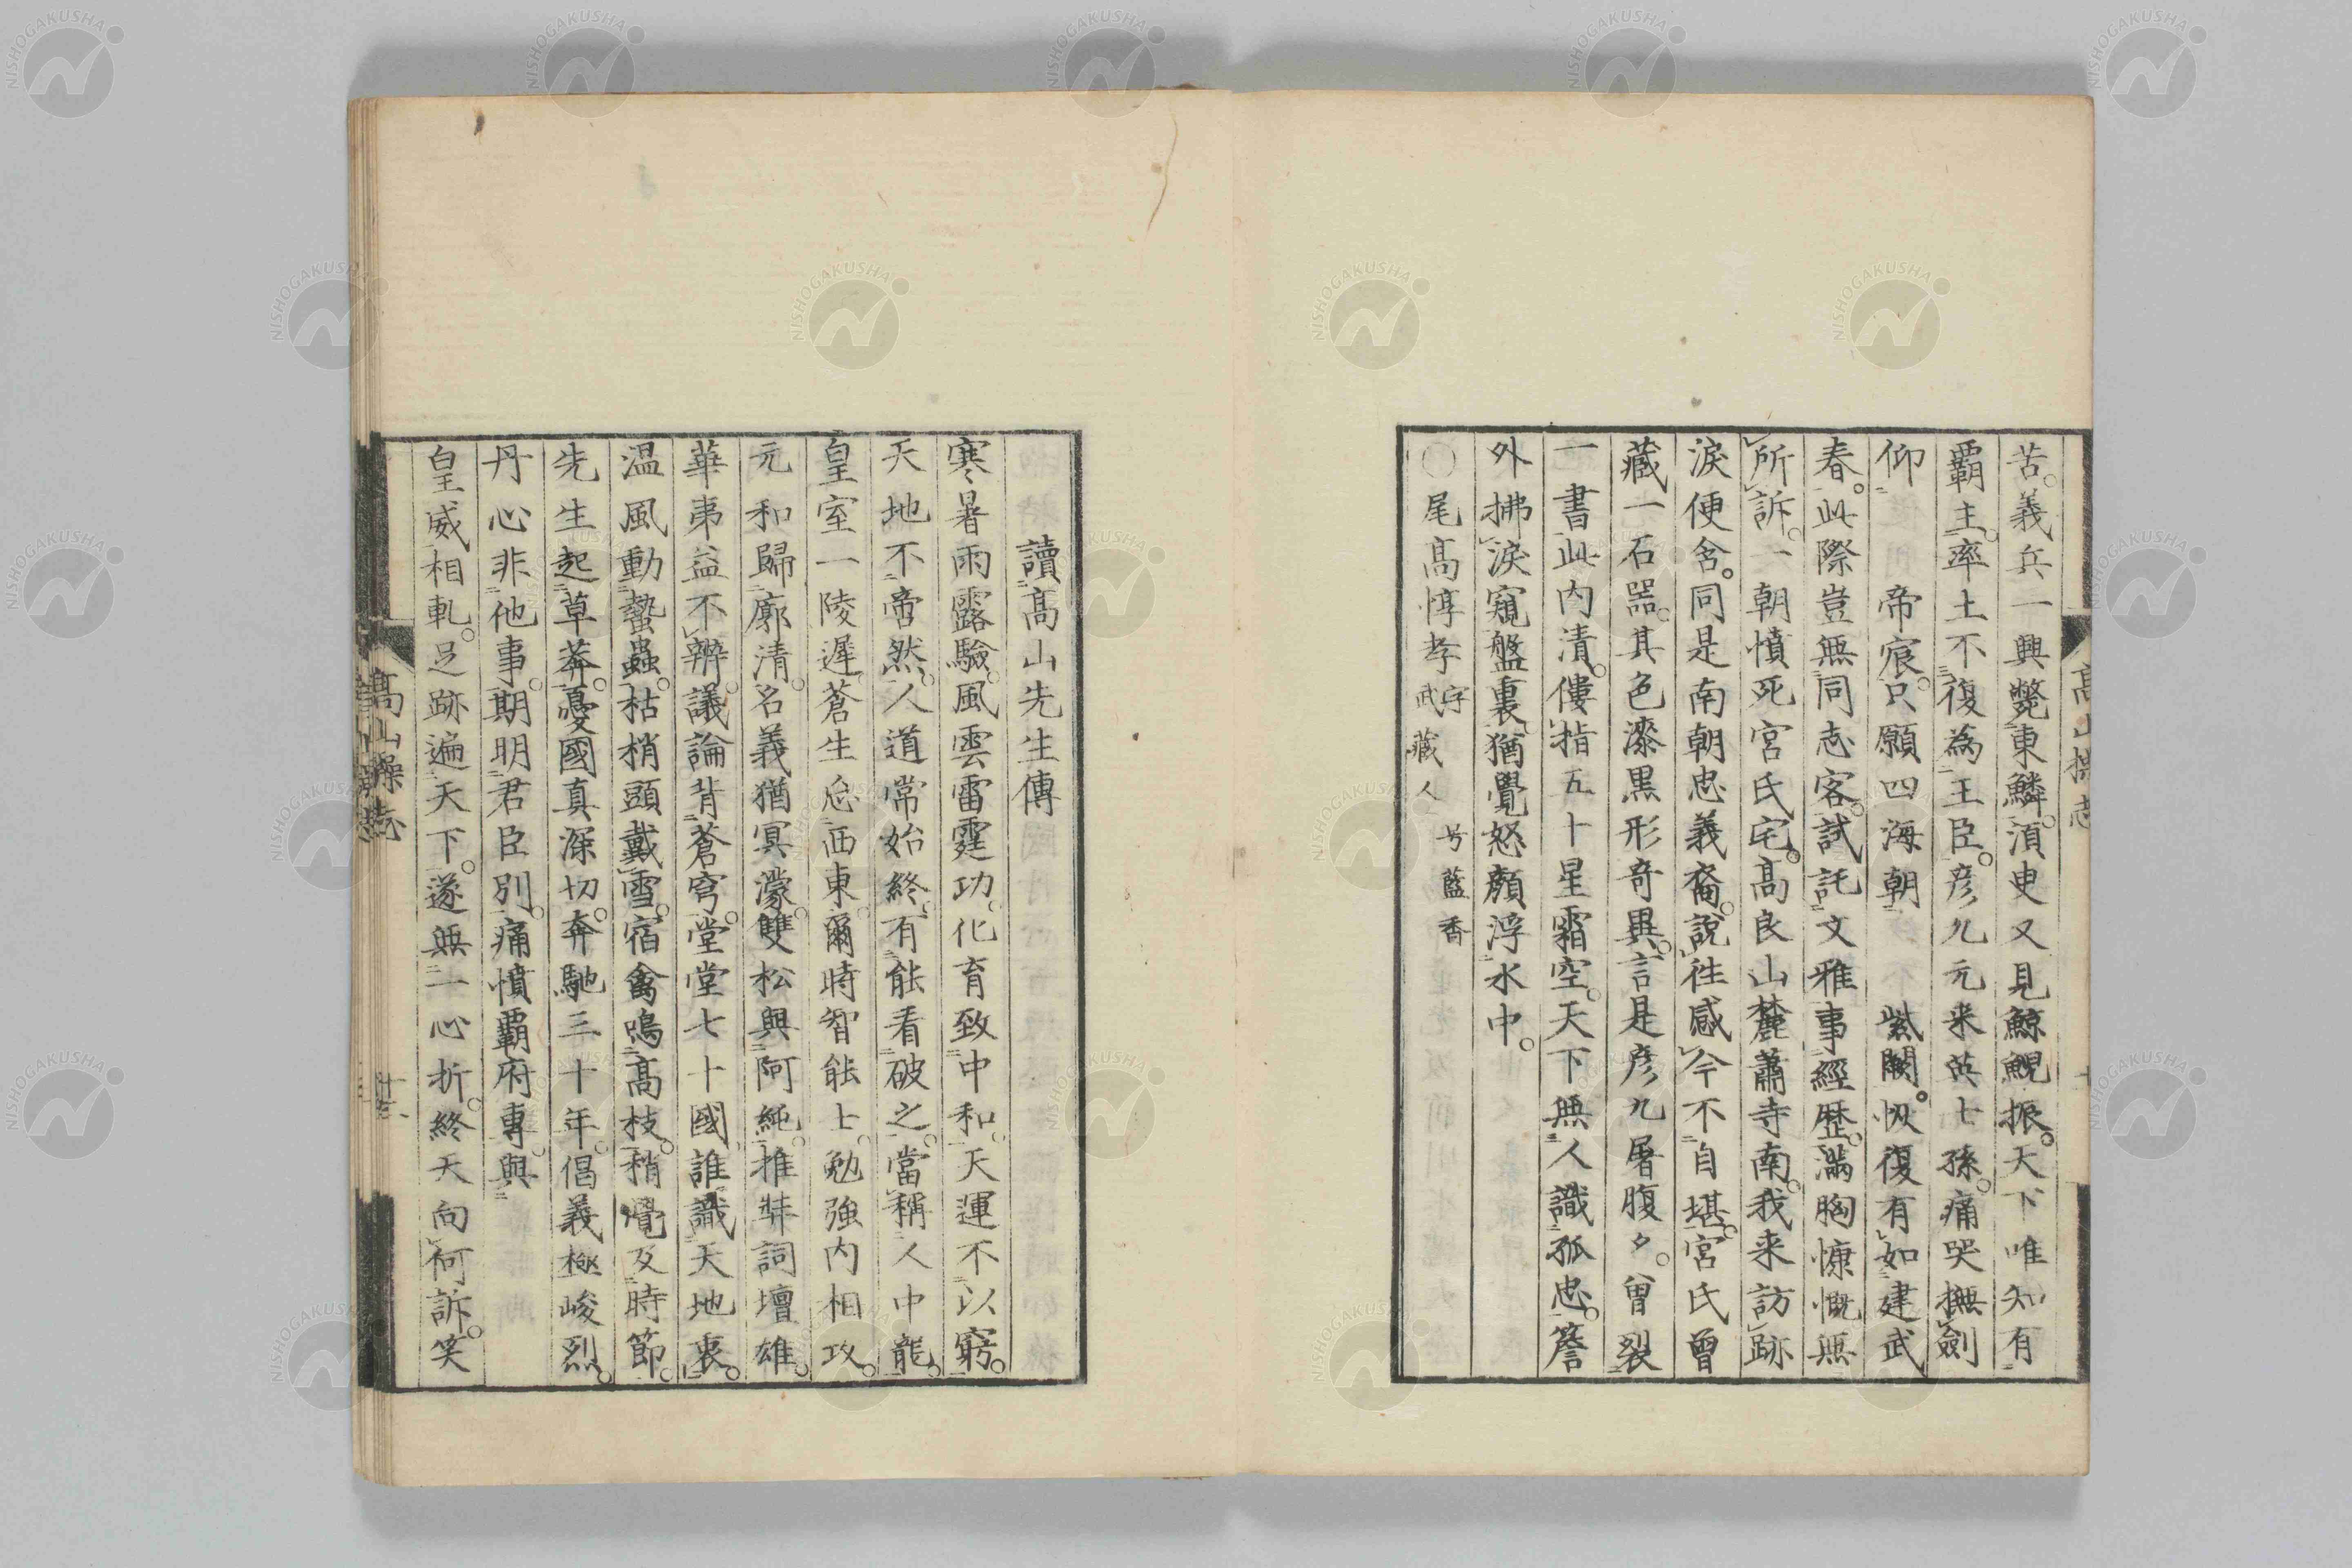 苦。義兵一興斃東鱗。湏臾又見鯨鯢振。天下唯知有
覇主。率土不復為王臣。彦九元来英士孫。痛哭撫劍
仰帝宸。只願四海朝紫闕。恢復有如建武
春。此際豈無同志客。試託文雅事經歴。滿胸慷慨無
所訴。一朝憤死宮氏宅。高良山麓蕭寺南。我来訪跡
淚便含。同是南朝忠義裔。說徃感今不自堪。宮氏曾
藏一石器。其色漆黒形奇異。言是彦九屠腹夕。曾裂
一書此内清。僂指五十星霜空。天下無人識孤忠。簷
外拂淚窺盤裏。猶覺怒顏浮水中。
〇尾高惇孝字 武藏人 号藍香
讀高山先生傳
寒暑雨露驗。風雲雷霆功。化育致中和。天運不以窮。
天地不啻然。人道常始終。有能看破之。當稱人中龍。
皇室一陵遲。蒼生忘西東。爾時智能士。勉強内相攻。
元和歸廓清。名義猶冥濛。雙松與阿純。推奘詞壇雄。
華夷益不辨。議論背蒼穹。堂堂七十國。誰識天地衷。
温風動蟄蟲。枯梢頭戴雪。宿禽鳴高枝。稍覺及時節。
先生起草莽。憂國真深切。奔馳三十年。倡義極峻烈。
丹心非他事。期明君臣別。痛憤覇府專。與
皇威相軋。足跡遍天下。遂無一心折。終天向何訴。笑
高山操志
NISHOGAKUSHA